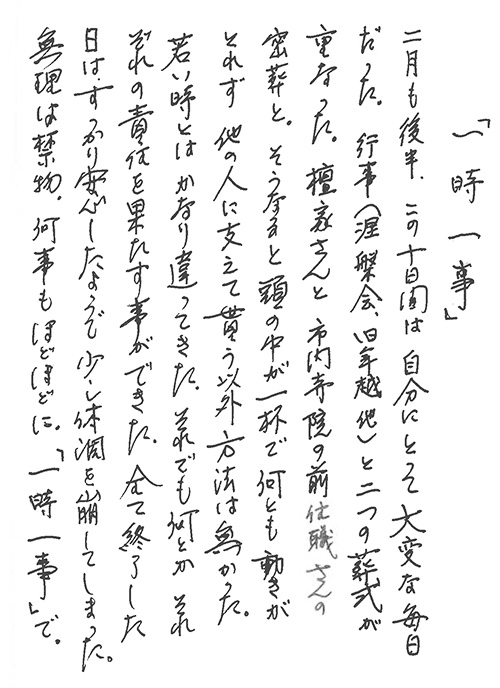 「一時一事」
二月も後半、この十日間は自分にとって大変な毎日
だった。行事(涅槃会、旧年越他)と二つの葬式が
重なった。檀家さんと市内寺院の前住職さんの
密葬と。そうなると頭の中が一杯で何とも動きが
とれず他の人に支えて貰う以外方法は無かった。
若い時とはかなり違ってきた。それでも何とかそれ
ぞれの責任を果たす事ができた。全て終了した
日は、すっかり安心したようで少し体調を崩してしまった。
無理は禁物。何事もほどほどに。「一時一事」で。